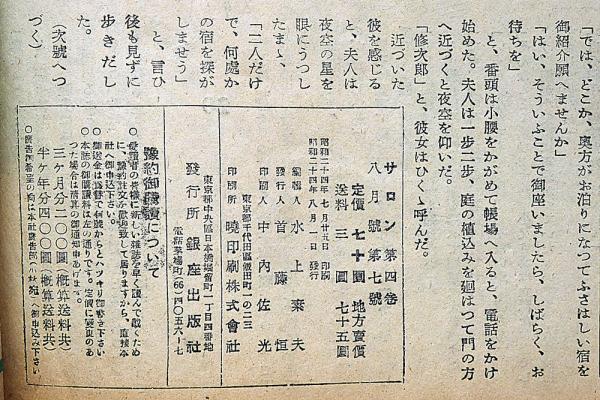 「では、どこか、奥方がお泊りになつてふさはしい宿を
御紹介願へませんか」
「はい、そういふことで御座いましたら、しばらく、お
待ちを」
と、番頭は小腰をかがめて帳場へ入ると、電話をかけ
始めた。夫人は一歩二歩、庭の植込みを廻はつて門の方
へ近づくと夜空を仰いだ。
「修次郎」と、彼女はひくゝ呼んだ。
近づいた
彼を感じる
と、夫人は
夜空の星を
眼にうつし
たまゝ、
「二人だけ
で、何處か
の宿を探が
しませう」
と、言ひ
後も見ずに
歩きだし
た。
（次號へつ
づく）
サロン 第四卷
八月號 第七號
定價 七十圓 地方賣價
送料 三圓 七十五圓
昭和二十四年七月廿五日 印刷
昭和二十四年八月一日 發行
編輯人 水上棄夫
發行人 首藤恒
印刷人 中内佐光
東京都千代田區飯田町一の二三
印刷所 曉印刷株式會社
東京都中央區日本橋蠣殼町一丁目四番地
發行所 銀座出版社
電話茅場町(66)四〇五六—七
豫約御購讀について
○愛讀者の皆樣に新しい雜誌を早く讀んで戴くため
に、豫約註文を歡迎致して居りますから、直接本
社へ御申込下さい。
○御送金は振替で何號からとハッキリ御書き下さい
○本誌の御購讀料は左の通りです。定價に變更のあ
つた場合は清算の御通知申あげます。
三ケ月分 二〇〇圓（概算送料共）
半ケ年分 四〇〇圓（概算送料共）
○廣告御希望の向は本社廣告部（小林宛）へ御申込み下さい